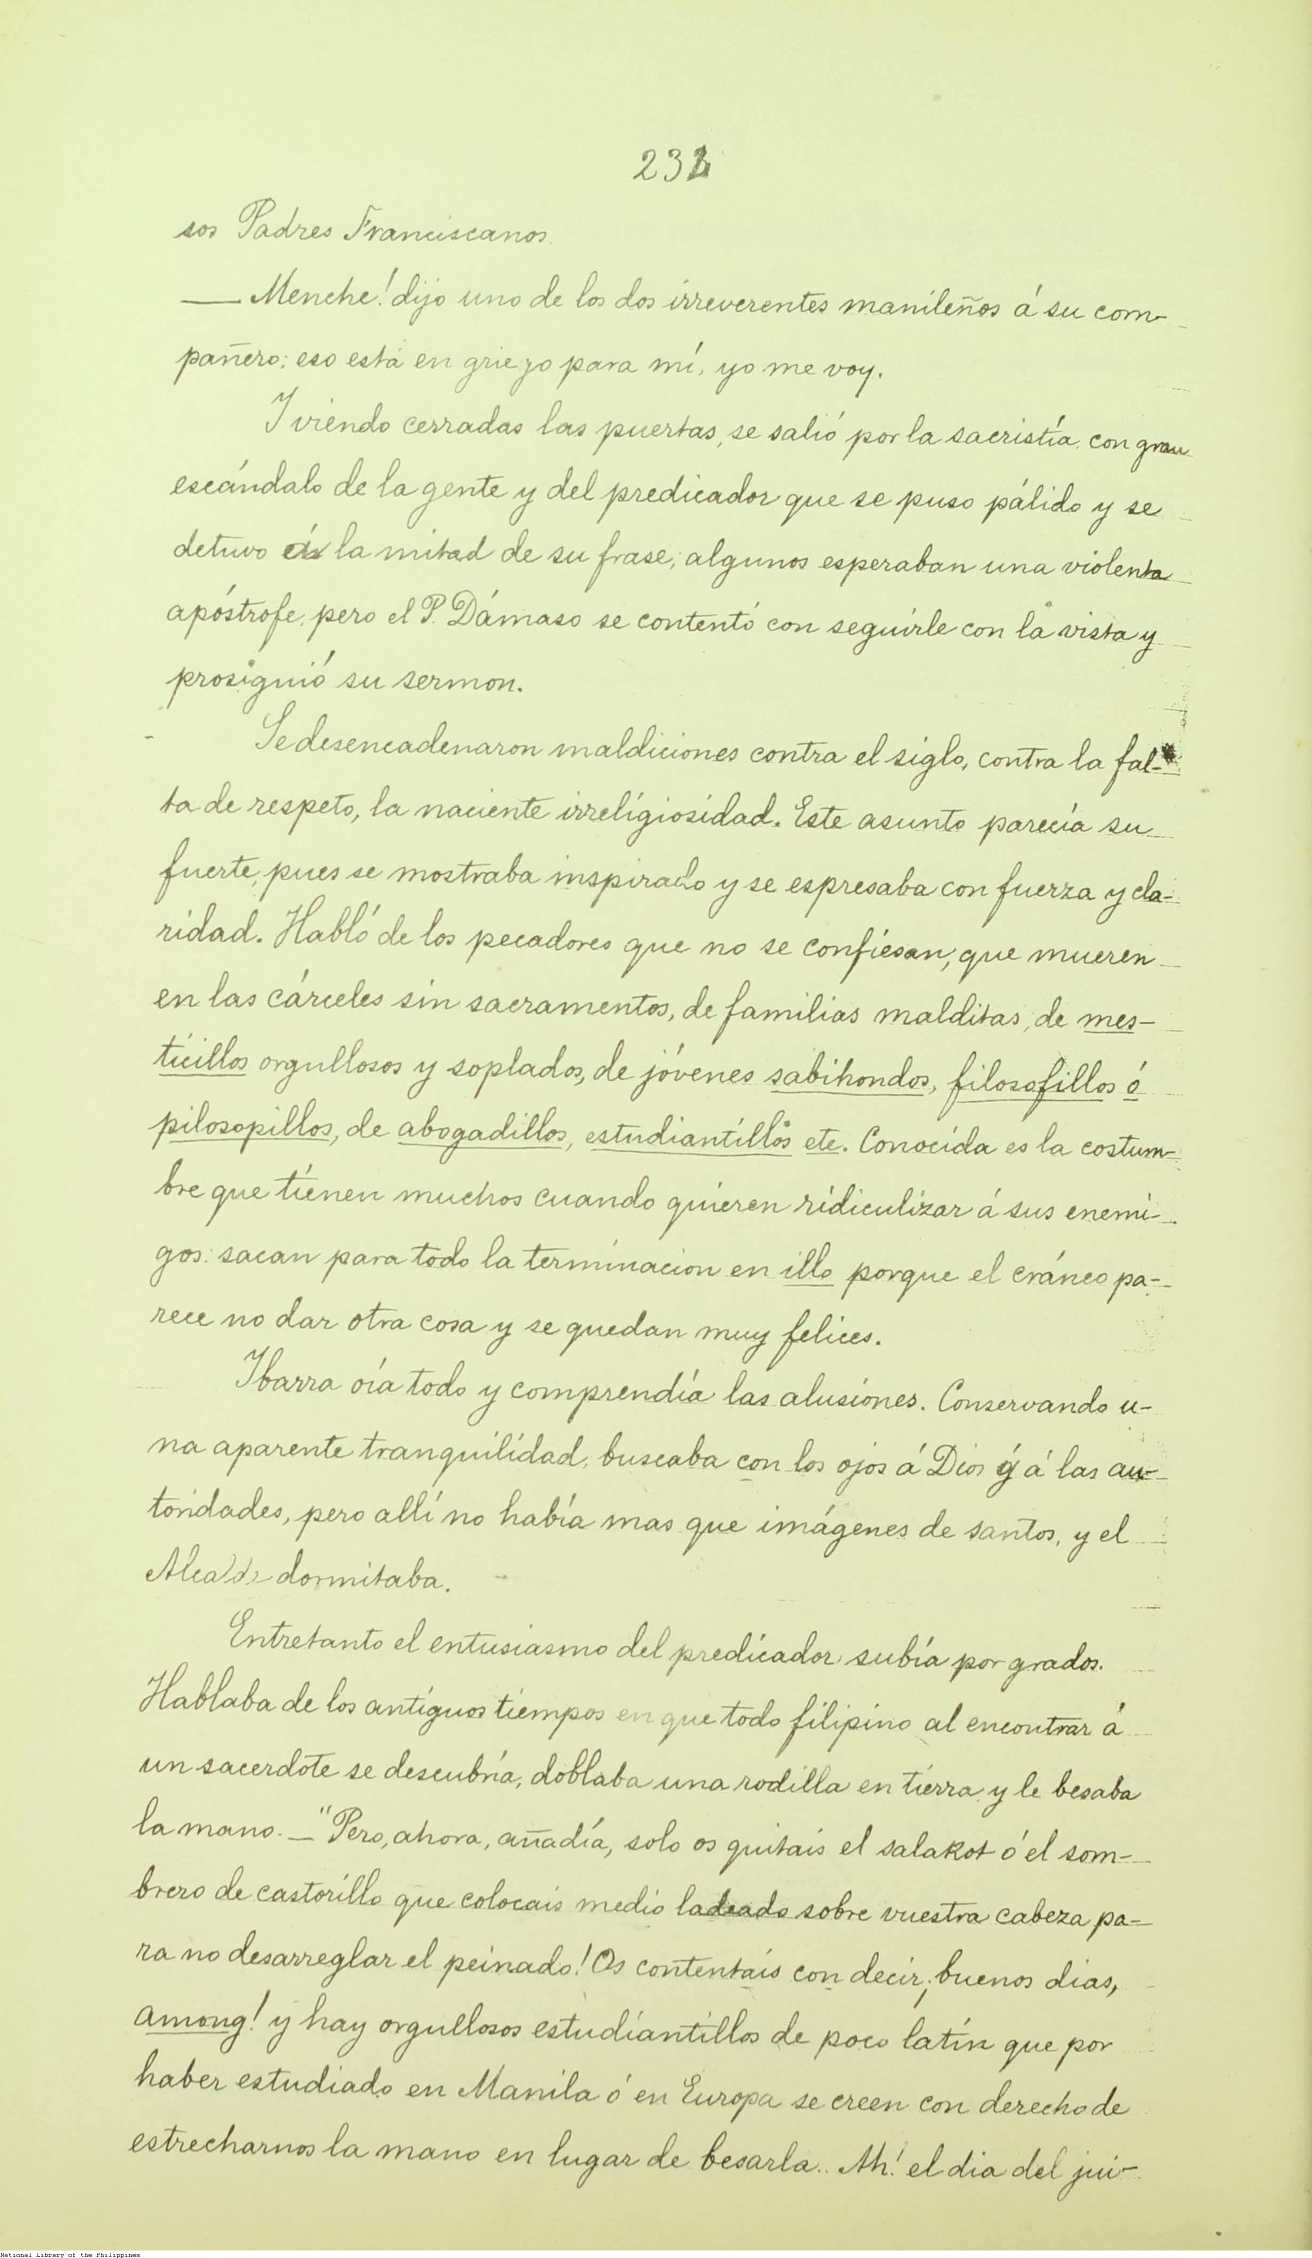 232
sos Padres Franciscanos.
— Menche! dijo uno de los dos irreverentes manileños á su com-
pañero; eso está en griego para mí, yo me voy.
Y viendo cerradas las puertas, se salió por la sacristía, con gran
escándalo de la gente y del predicador que se puso pálido y se
detuvo á la mitad de su frase; algunos esperaban una violenta
apóstrofe, pero el P. Dámaso se contentó con seguirle con la vista y
prosiguió su sermon.
Se desencadenaron maldiciones contra el siglo, contra la fal-
ta de respeto, la naciente irreligiosidad. Este asunto parecía su
fuerte, pues se mostraba inspirado y se espresaba con fuerza y cla-
ridad. Habló de los pecadores que no se confiesan, que mueren
en las cárceles sin sacramentos, de familias malditas, de mes-
ticillos orgullosos y soplados, de jóvenes sabihondos, filosofillos ó
pilosopillos, de abogadillos, estudiantillos etc. Conocida es la costum-
bre que tienen muchos cuando quieren ridiculizar á sus enemi-
gos: sacan para todo la terminacion en illo porque el cráneo pa-
rece no dar otra cosa y se quedan muy felices.
Ibarra oía todo y comprendía las alusiones. Conservando u-
na aparente tranquilidad, buscaba con los ojos á Dios y á las au-
toridades, pero allí no había mas que imágenes de santos, y el
Alcalde dormitaba.
Entretanto el entusiasmo del predicador subía por grados.
Hablaba de los antiguos tiempos en que todo filipino al encontrar á
un sacerdote se descubría, doblaba una rodilla en tierra y le besaba
la mano. — "Pero, ahora, añadía, solo os quitais el salakot ó el som-
brero de castorillo que colocais medio ladeado sobre vuestra cabeza pa-
ra no desarreglar el peinado! Os contentais con decir; buenos dias,
among! y hay orgullosos estudiantillos de poco latín que por
haber estudiado en Manila ó en Europa se creen con derecho de
estrecharnos la mano en lugar de besarla.. Ah! el dia del jui-
National Library of the Philippines